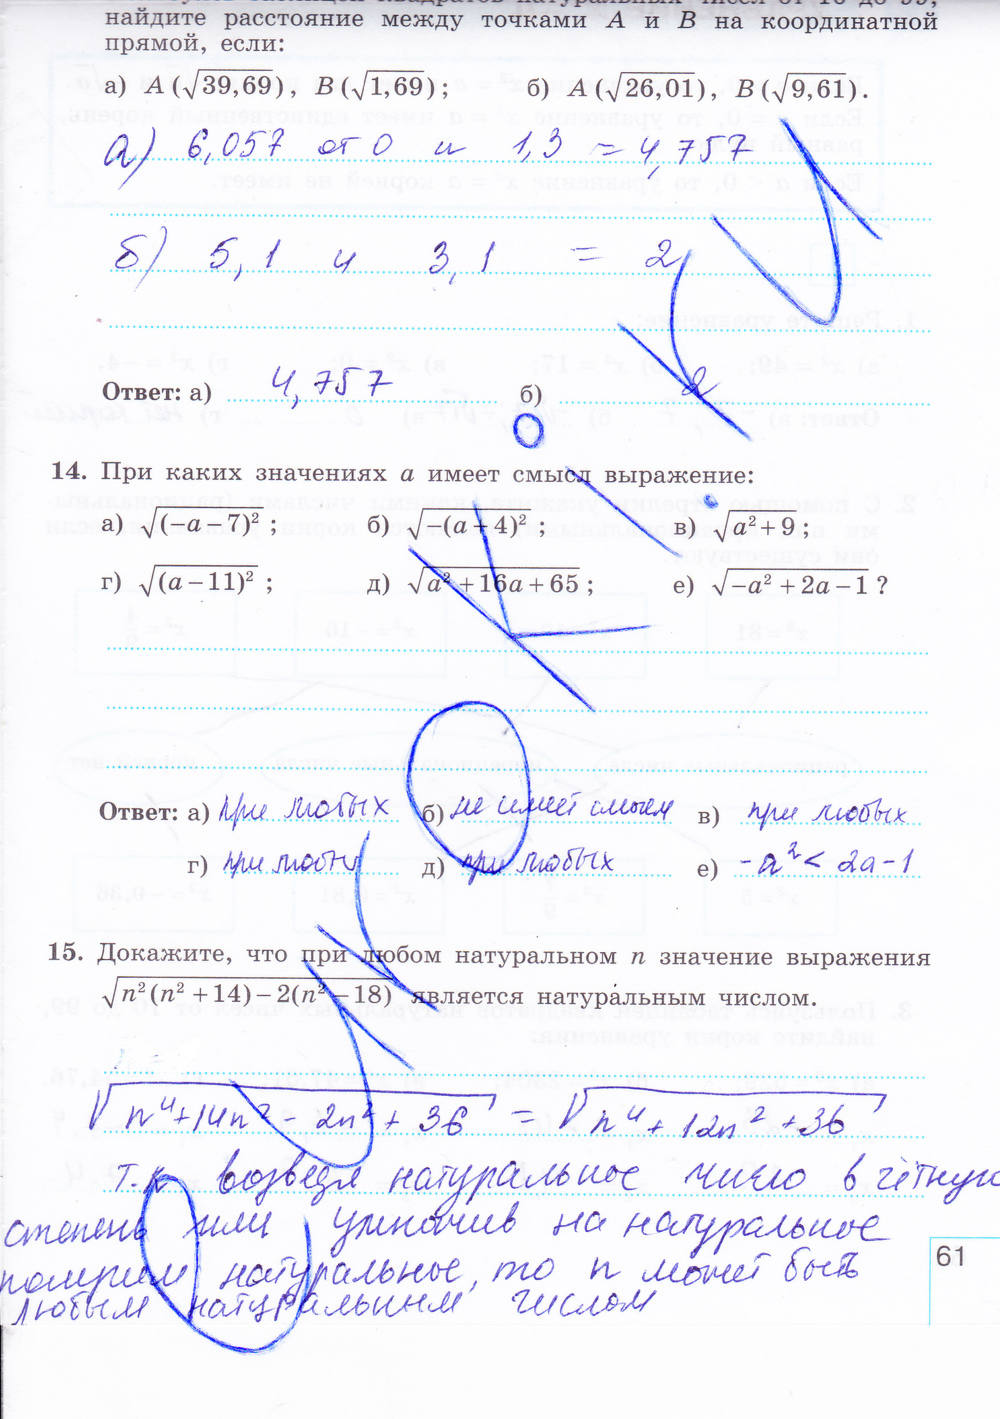 найдите расстояние между точками A и B на координатной
прямой, если:
а) A(√39,69), B(√1,69); б) A(√26,01), B(√9,61).
а) 6,057 от 0 и 1,3 ≈ 4,757
б) 5,1 и 3,1 = 2
Ответ: а) 4,757 б) 2
14. При каких значениях a имеет смысл выражение:
а) √(−a−7)²; б) √−(a+4)²; в) √a²+9;
г) √(a−11)²; д) √a²+16a+65; е) √−a²+2a−1?
Ответ: а) при любых б) не имеет смысла в) при любых
г) при любых д) при любых е) -a² < 2a-1
15. Докажите, что при любом натуральном n значение выражения
√n²(n²+14)−2(n²−18) является натуральным числом.
√n⁴+14n²-2n²+36 = √n⁴+12n²+36
т.к возведя натуральное число в чётную
степень или умножив на натуральное
получим натуральное, то n может быть
любым натуральным числом
61